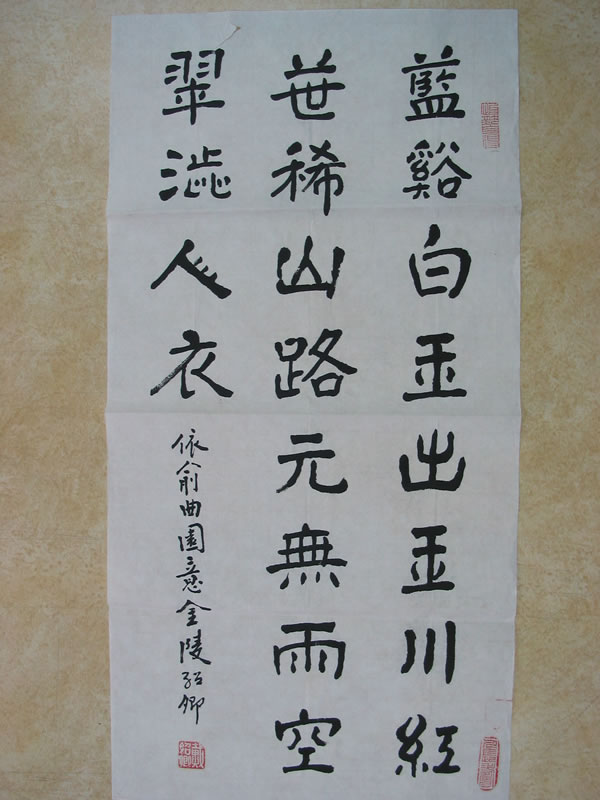 藍谿白玉出玉川紅
葉稀山路元無雨空
翠澁人衣
依俞曲園意金陵紹卿